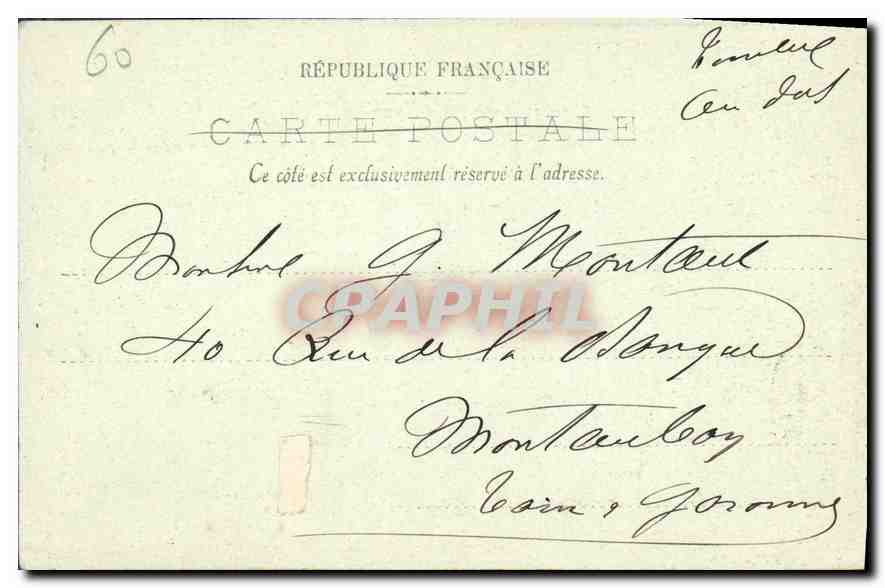 60
Timbre
au dos
RÉPUBLIQUE FRANÇAISE
CARTE POSTALE
Ce côté est exclusivement réservé à l'adresse.
Monsieur G. Montaut
40 Rue de la Banque
CPAPHIL
Montauban
Tarn & Garonne